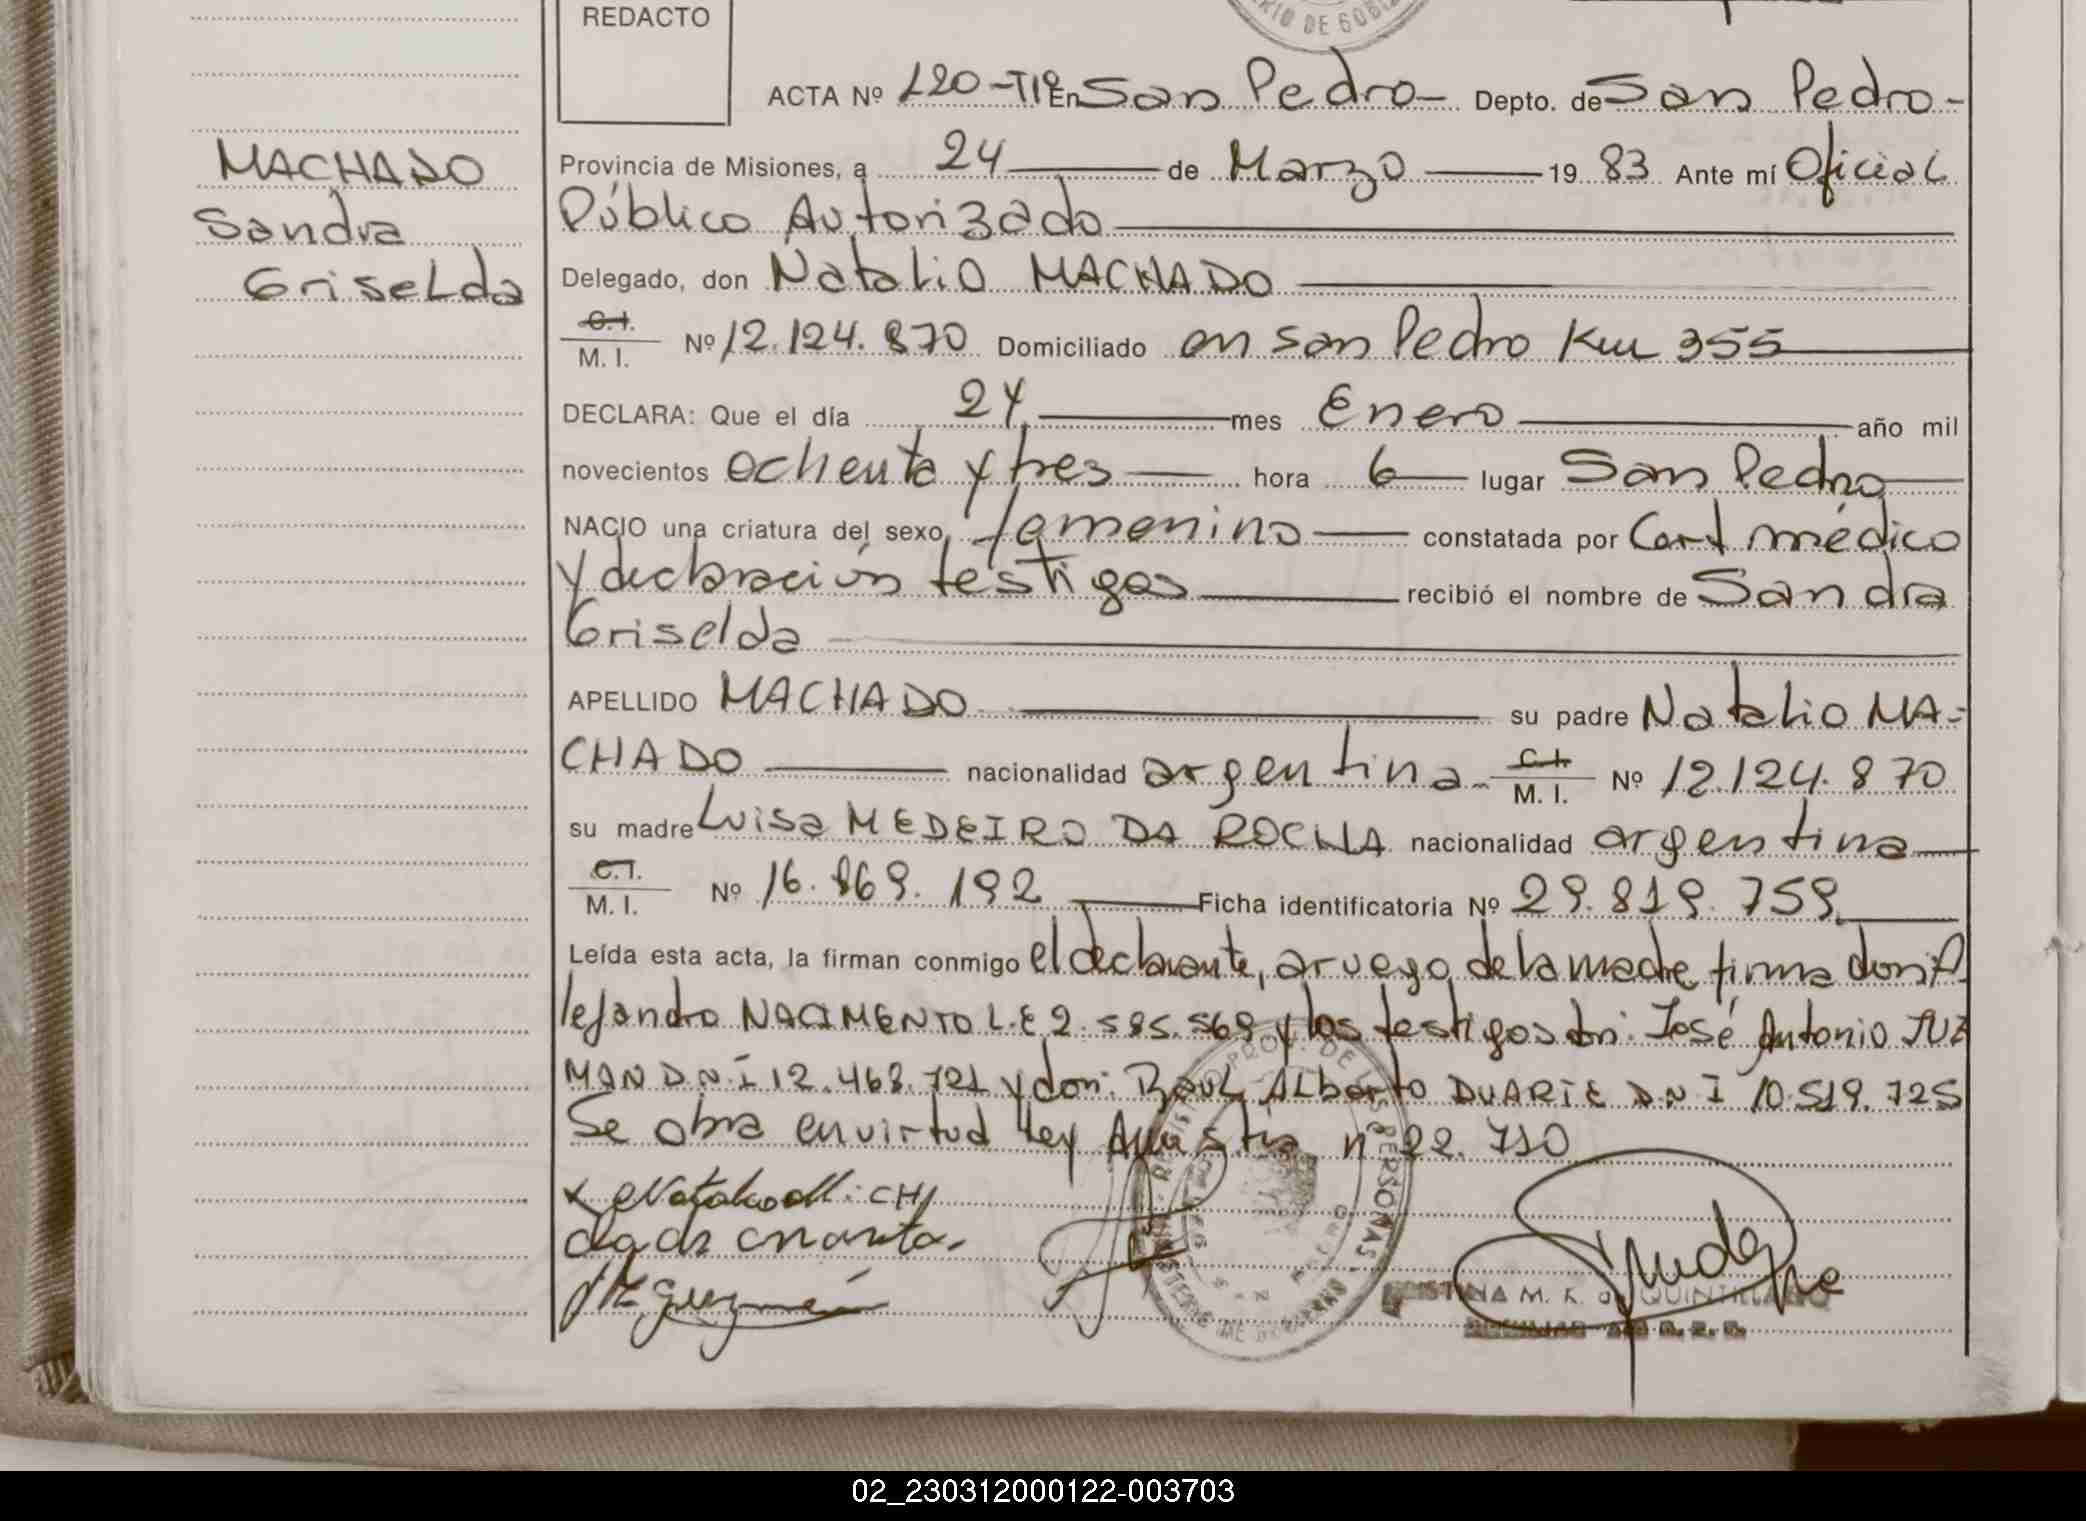 REDACTO
RIO DE GOBI
ACTA Nº 120-Tº1º En San Pedro- Depto. de San Pedro-
MACHADO
Sandra
Griselda
Provincia de Misiones, a 24 de Marzo 1983 Ante mí Oficial
Público Autorizado
Delegado, don Natalio MACHADO
C.I. M. I. Nº 12.124.870 Domiciliado en San Pedro Km 355
DECLARA: Que el día 24 mes Enero año mil
novecientos ochenta y tres hora 6 lugar San Pedro
NACIO una criatura del sexo femenino constatada por Cert médico
y declaración testigos recibió el nombre de Sandra
Griselda
APELLIDO MACHADO su padre Natalio MA-
CHADO nacionalidad argentina- C.I. M. I. Nº 12.124.870
su madre Luisa MEDEIRO DA ROCHA nacionalidad argentina
C.I. M. I. Nº 16.869.192 Ficha identificatoria Nº 29.819.759
Leída esta acta, la firman conmigo el declarante, a ruego de la madre firma don: A-
lejandro NACIMENTO L.E 2.585.569 y los testigos don: José Antonio
MAN D.N.I 12.468.721 y don: Raul Alberto DUARTE D.N.I 10.519.725
Se obra en virtud ley Amnistia n 22.710
CRISTINA M. K. de QUINTILIANO
02_230312000122-003703